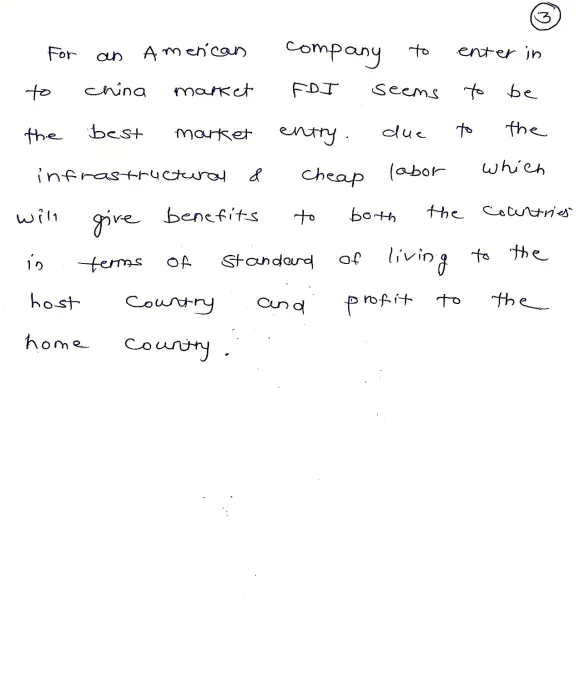 3
For an American company to enter in
to china market FDI seems to be
the best market entry. due to the
infrastructural & cheap labor which
will give benefits to both the countries
in terms of standard of living to the
host country and profit to the
home country.